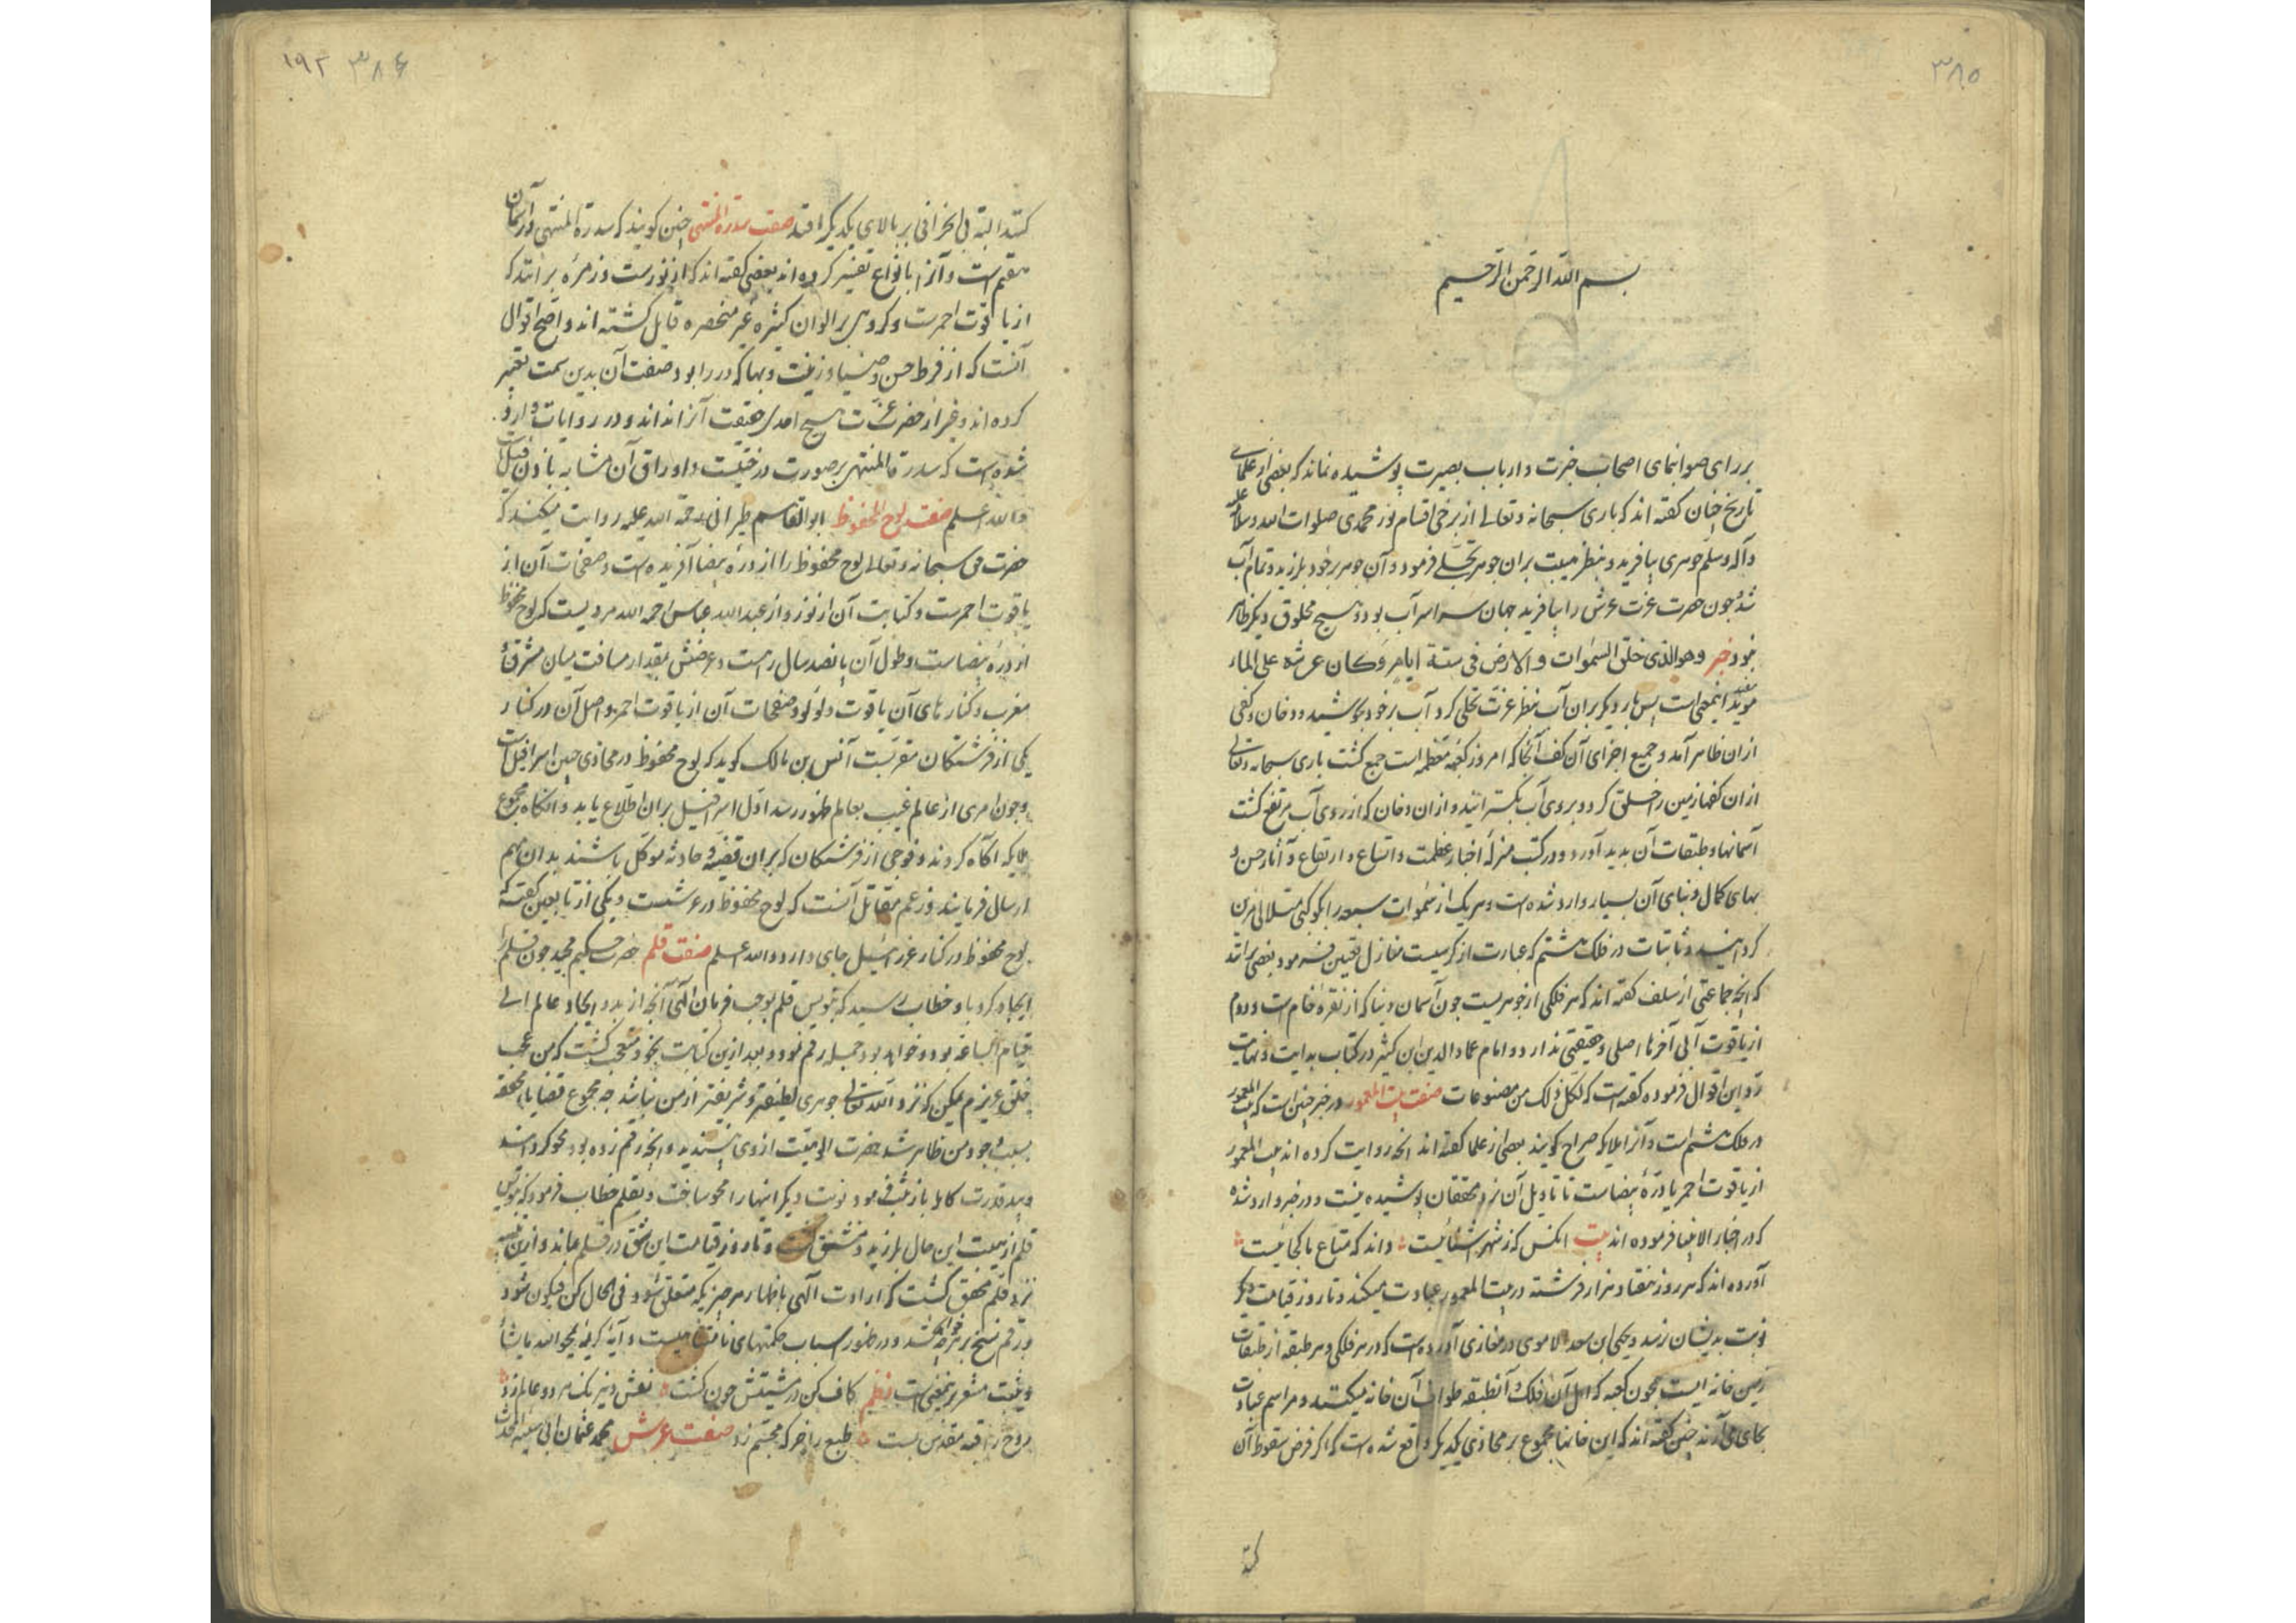 ۳۸۵
بسم الله الرحمن الرحیم
بر رای صوابنمای اصحاب خبرت و ارباب بصیرت پوشیده نماند که بعضی از علمای
تاریخ چنان کفته اند که باری سبحانه و تعالی از برخی اقسام نور محمدی صلوات الله و سلامه علیه
و آله وسلم جوهری بیافرید و بنظر هیبت بران جوهر تجلی فرمود و آن جوهر برخود بلرزید و تمام آب
شد و چون حضرت عزت عرش را بیافرید جهان سراسر آب بود و هیچ مخلوق دیکر ظاهر
نبود خبر وهو الذی خلق السموات والارض فی ستة ایام وکان عرشه علی الماء
مؤید اینمعنی است پس بار دیکر بران آب بنظر عزت تجلی کرد آب برخود بجوشید و دخان و کفی
ازان ظاهر آمد و جمیع اجزای آن کف آنجا که امروز کعبه معظمه است جمع کشت باری سبحانه و تعالی
ازان کفها زمین را خلق کرد و بر روی آب بکسترانید و ازان دخان که از روی آب مرتفع کشت
آسمانها و طبقات آن پدید آورد و در کتب منزله اخبار عظمت و اتساع و ارتفاع و آثار حسن و
بهای کمال و بنای آن بسیار وارد شده است و هر یک از سموات سبعه را بکوکبی متلالی مزین
کردانید و ثابتات در فلک هشتم که عبارت از کرسیست منازل تعیین فرمود بعضی برانند
که انچه جماعتی از سلف کفته اند که هر فلکی از جوهریست چون آسمان دنیا که از نقره خام است و دوم
از یاقوت الی آخرها اصلی و حقیقتی ندارد و امام عماد الدین ابن کثیر در کتاب بدایت و نهایت
رد این اقوال فرموده کفته است که لکل ذلک من مصنوعات صفت بیت المعمور در خبر چنین است که بیت المعمور
در فلک هشتم است و آنرا ملایکه صراح کویند بعضی از علما کفته اند انچه روایت کرده اند بیت المعمور
از یاقوت احمر یا دره بیضاست تا تاویل آن نزد محققان پوشیده نیست و در خبر وارد شده
که در اخبار الانبیا فرموده اند بیت انکس که ز شهر آشنائیست داند که متاع ما کجائیست
آورده اند که هر روز هفتاد هزار فرشته در بیت المعمور عبادت میکنند و تا روز قیامت دیکر
نوبت بدیشان نرسد و یحیی ابن سعد الاموی در مغازی آورده است که در هر فلکی و هر طبقه از طبقات
زمین خانه ایست همچون کعبه که اهل آن فلک و آنطبقه طواف آن خانه میکنند و مراسم عبادت
بجای می آرند چنین کفته اند که این خانها مجموع بر محاذی یکدیکر واقع شده است که اکر فرض سقوط آن
کنند
۳۸۶ ۱۹۳
کنند البته بی انحرافی بر بالای یکدیکر افتد صفت سدرة المنتهی چنین کویند که سدرة المنتهی در آسمان
هفتم است و آنرا بانواع تفسیر کرده اند بعضی کفته اند که از نورست و زمره برانند که
از یاقوت احمرست و کروهی بر الوان کثیره غیر منحصره قایل کشته اند و اصح اقوال
آنست که از فرط حسن و ضیا و زینت و بها که در را بود صفت آن بدین سمت تعبیر
کرده اند و غیر از حضرت عزت هیچ احدی حقیقت آنرا نداند و در روایات وارد
شده است که سدرة المنتهی بر صورت درختیست و اوراق آن مشابه باذن فیل است
والله اعلم صفت لوح المحفوظ ابوالقاسم طبرانی رحمة الله علیه روایت میکند که
حضرت حق سبحانه و تعالی لوح محفوظ را از دره بیضا آفریده است و صفحات آن از
یاقوت احمرست و کتابت آن از نور و از عبدالله عباس رحمه الله مرویست که لوح محفوظ
از دره بیضاست و طول آن پانصد ساله راهست و عرضش بمقدار مسافت میان مشرق و
مغرب و کنارهای آن یاقوت و لؤلؤ و صفحات آن از یاقوت احمر و اصل آن در کنار
یکی از فرشتکان مقربست انس بن مالک کوید که لوح محفوظ در محاذی جبین اسرافیل است
و چون امری از عالم غیب بعالم ظهور رسد اول اسرافیل بران اطلاع یابد و آنکاه مجموع
ملایکه آکاه کردند و فوجی از فرشتکان که بران قضیه و حادثه موکل باشند بدان مهم
ارسال فرمایند و زعم مقاتل آنست که لوح محفوظ در عرشست و یکی از تابعین کفته که
لوح محفوظ در کنار عزرائیل جای دارد والله اعلم صفت قلم حضرت حکیم مجید چون قلم را
ایجاد کرد باو خطاب رسید که بنویس قلم بموجب فرمان الهی آنچه از بدو ایجاد عالم الی
قیام الساعه بود و خواهد بود جمله رقم نمود و بعد ازین کتابت بخود متعجب کشت که من عجب
خلقی عزیزم یمکن که نزد الله تعالی جوهری لطیفتر و شریفتر از من نباشد چه مجموع قضایا محققه
بسبب وجود من ظاهر شد حضرت الوهیت از وی نپسندید و انچه رقم زده بود محو کردانید
و بید قدرت کامله باز ثبت فرمود نوبت دیکر اینها را محو ساخت و بقلم خطاب فرمود که بنویس
قلم از هیبت این حال بلرزید و منشق کشت و تا روز قیامت این شق در قلم بماند و ازین
نزد قلم محقق کشت که ارادت الهی باظهار هر چیزی که متعلق شود فی الحال کن فیکون شود
و رقم نسخ بر هر چه خواهد کشد و در ظهور اسباب حکمتهای نامتناهیست و آیة کریمه یمحو الله ما یشاء
و یثبت مشعر بدینمعنی است نظم کاف کن در مشیتش چون کشت نقش نیرنک هر دو عالم زد
روح را قبه مقدس بست طبع را خرکه مجسم زد صفت عرش محمد عثمان ابی شیبه محدث